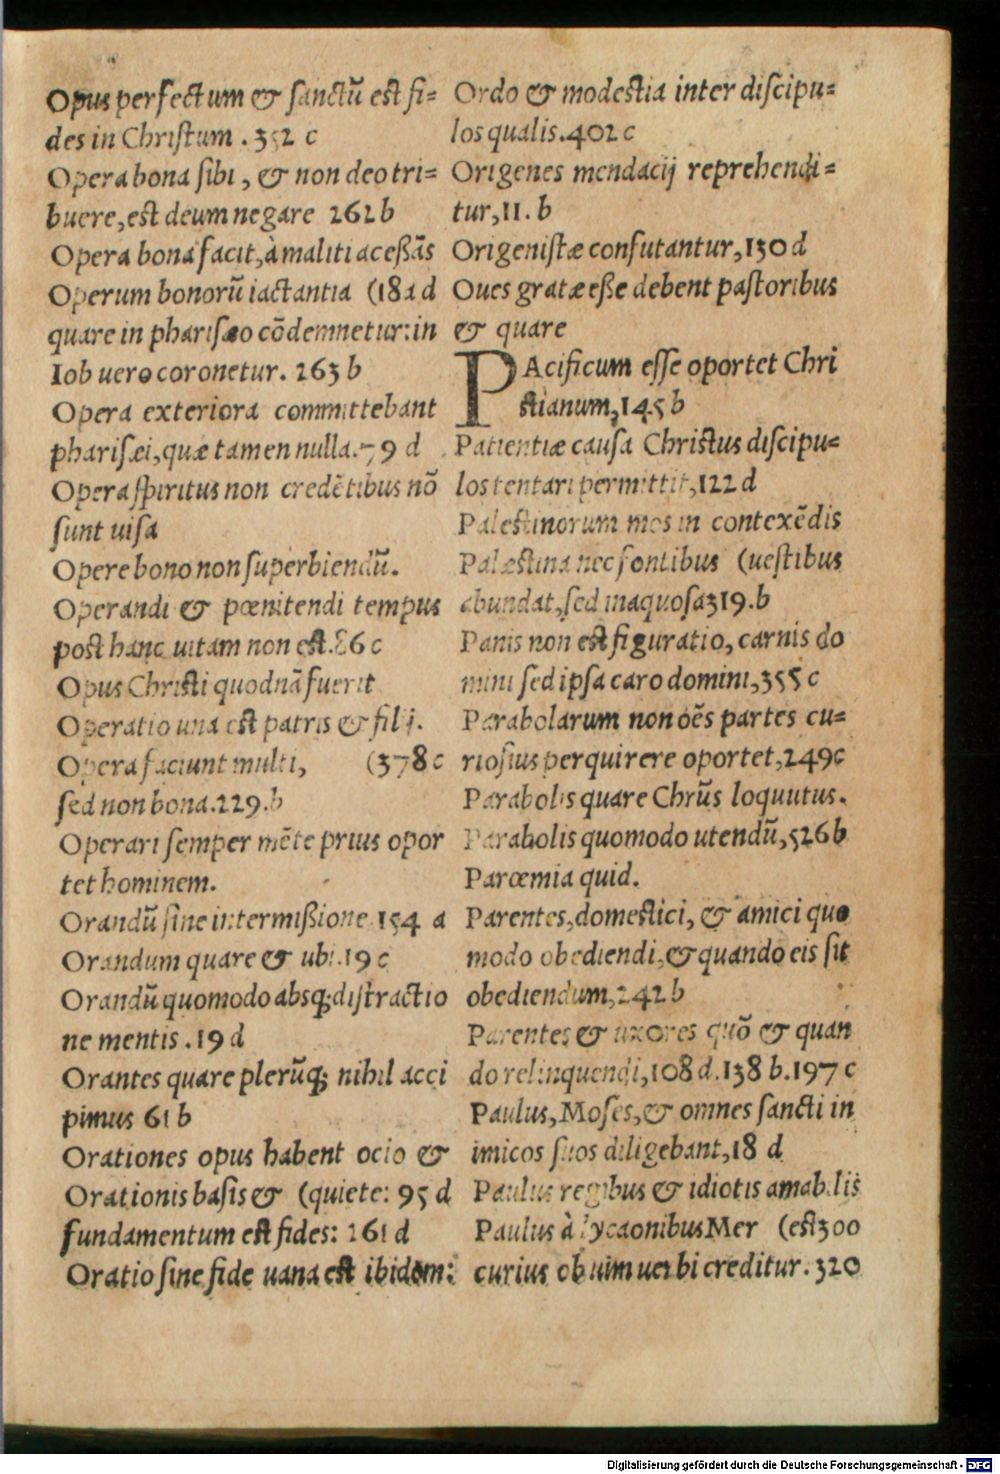 Opus perfectum & sanctũ est fi=
des in Christum . 352 c
Opera bona sibi , & non deo tri=
buere, est deum negare 262 b
Opera bona facit, à malitia ceßãs
Operum bonorũ iactantia (182 d
quare in pharisæo cõdemnetur: in
Iob uero coronetur. 263 b
Opera exteriora committebant
pharisæi, quæ tamen nulla. 79 d
Opera spiritus non credẽtibus nõ
sunt uisa
Opere bono non superbiendũ.
Operandi & pœnitendi tempus
post hanc uitam non est. 86 c
Opus Christi quodnã fuerit
Operatio una est patris & filij.
Opera faciunt multi, (378 c
sed non bona. 229. b
Operari semper mẽte prius opor
tet hominem.
Orandũ sine intermißione 154 a
Orandum quare & ubi. 19 c
Orandũ quomodo absq; distractio
ne mentis . 19 d
Orantes quare plerũq; nihil acci
pimus 61 b
Orationes opus habent ocio &
Orationis basis & (quiete: 95 d
fundamentum est fides: 261 d
Oratio sine fide uana est ibidem:
Ordo & modestia inter discipu=
los qualis. 402 c
Origenes mendacij reprehendi=
tur, 11. b
Origenistæ confutantur, 130 d
Oues gratæ eße debent pastoribus
& quare
PAcificum esse oportet Chri
stianum, 145 b
Patientiæ causa Christus discipu=
los tentari permittit, 122 d
Palestinorum mos in contexẽdis
Palæstina nec fontibus (uestibus
abundat, sed inaquosa 319. b
Panis non est figuratio, carnis do
mini sed ipsa caro domini, 355 c
Parabolarum non oẽs partes cu=
riosius perquirere oportet, 249 c
Parabolis quare Chrũs loquutus.
Parabolis quomodo utendũ, 526 b
Parœmia quid.
Parentes, domestici, & amici quo
modo obediendi, & quando eis sit
obediendum, 242 b
Parentes & uxores quõ & quan
do relinquendi, 108 d. 138 b. 197 c
Paulus, Moses, & omnes sancti in
imicos suos diligebant, 18 d
Paulus regibus & idiotis amabilis
Paulus à lycaonibus Mer (est 300
curius ob uim uerbi creditur. 320
Digitalisierung gefördert durch die Deutsche Forschungsgemeinschaft - DFG